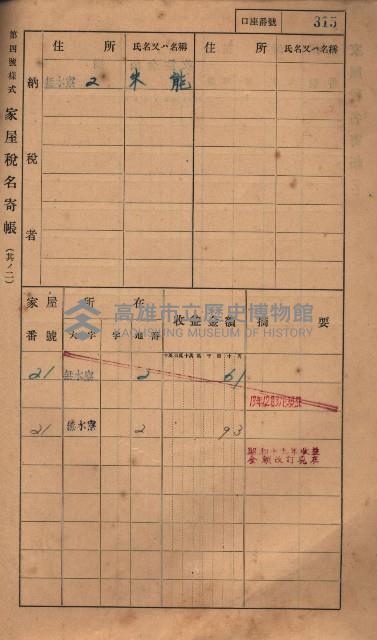 口座番號 315
第四號樣式 家屋稅名寄帳 (其ノ二)
住所 氏名又ハ名稱 住所 氏名又ハ名稱
納稅者
無水寮 2 朱能
高雄市立歷史博物館
KAOHSIUNG MUSEUM OF HISTORY
家屋番號 所在 收金金額 摘要
大字 字 地番
21 無水寮 2 61
21 無水寮 2 93
昭和十九年收益
金額改訂